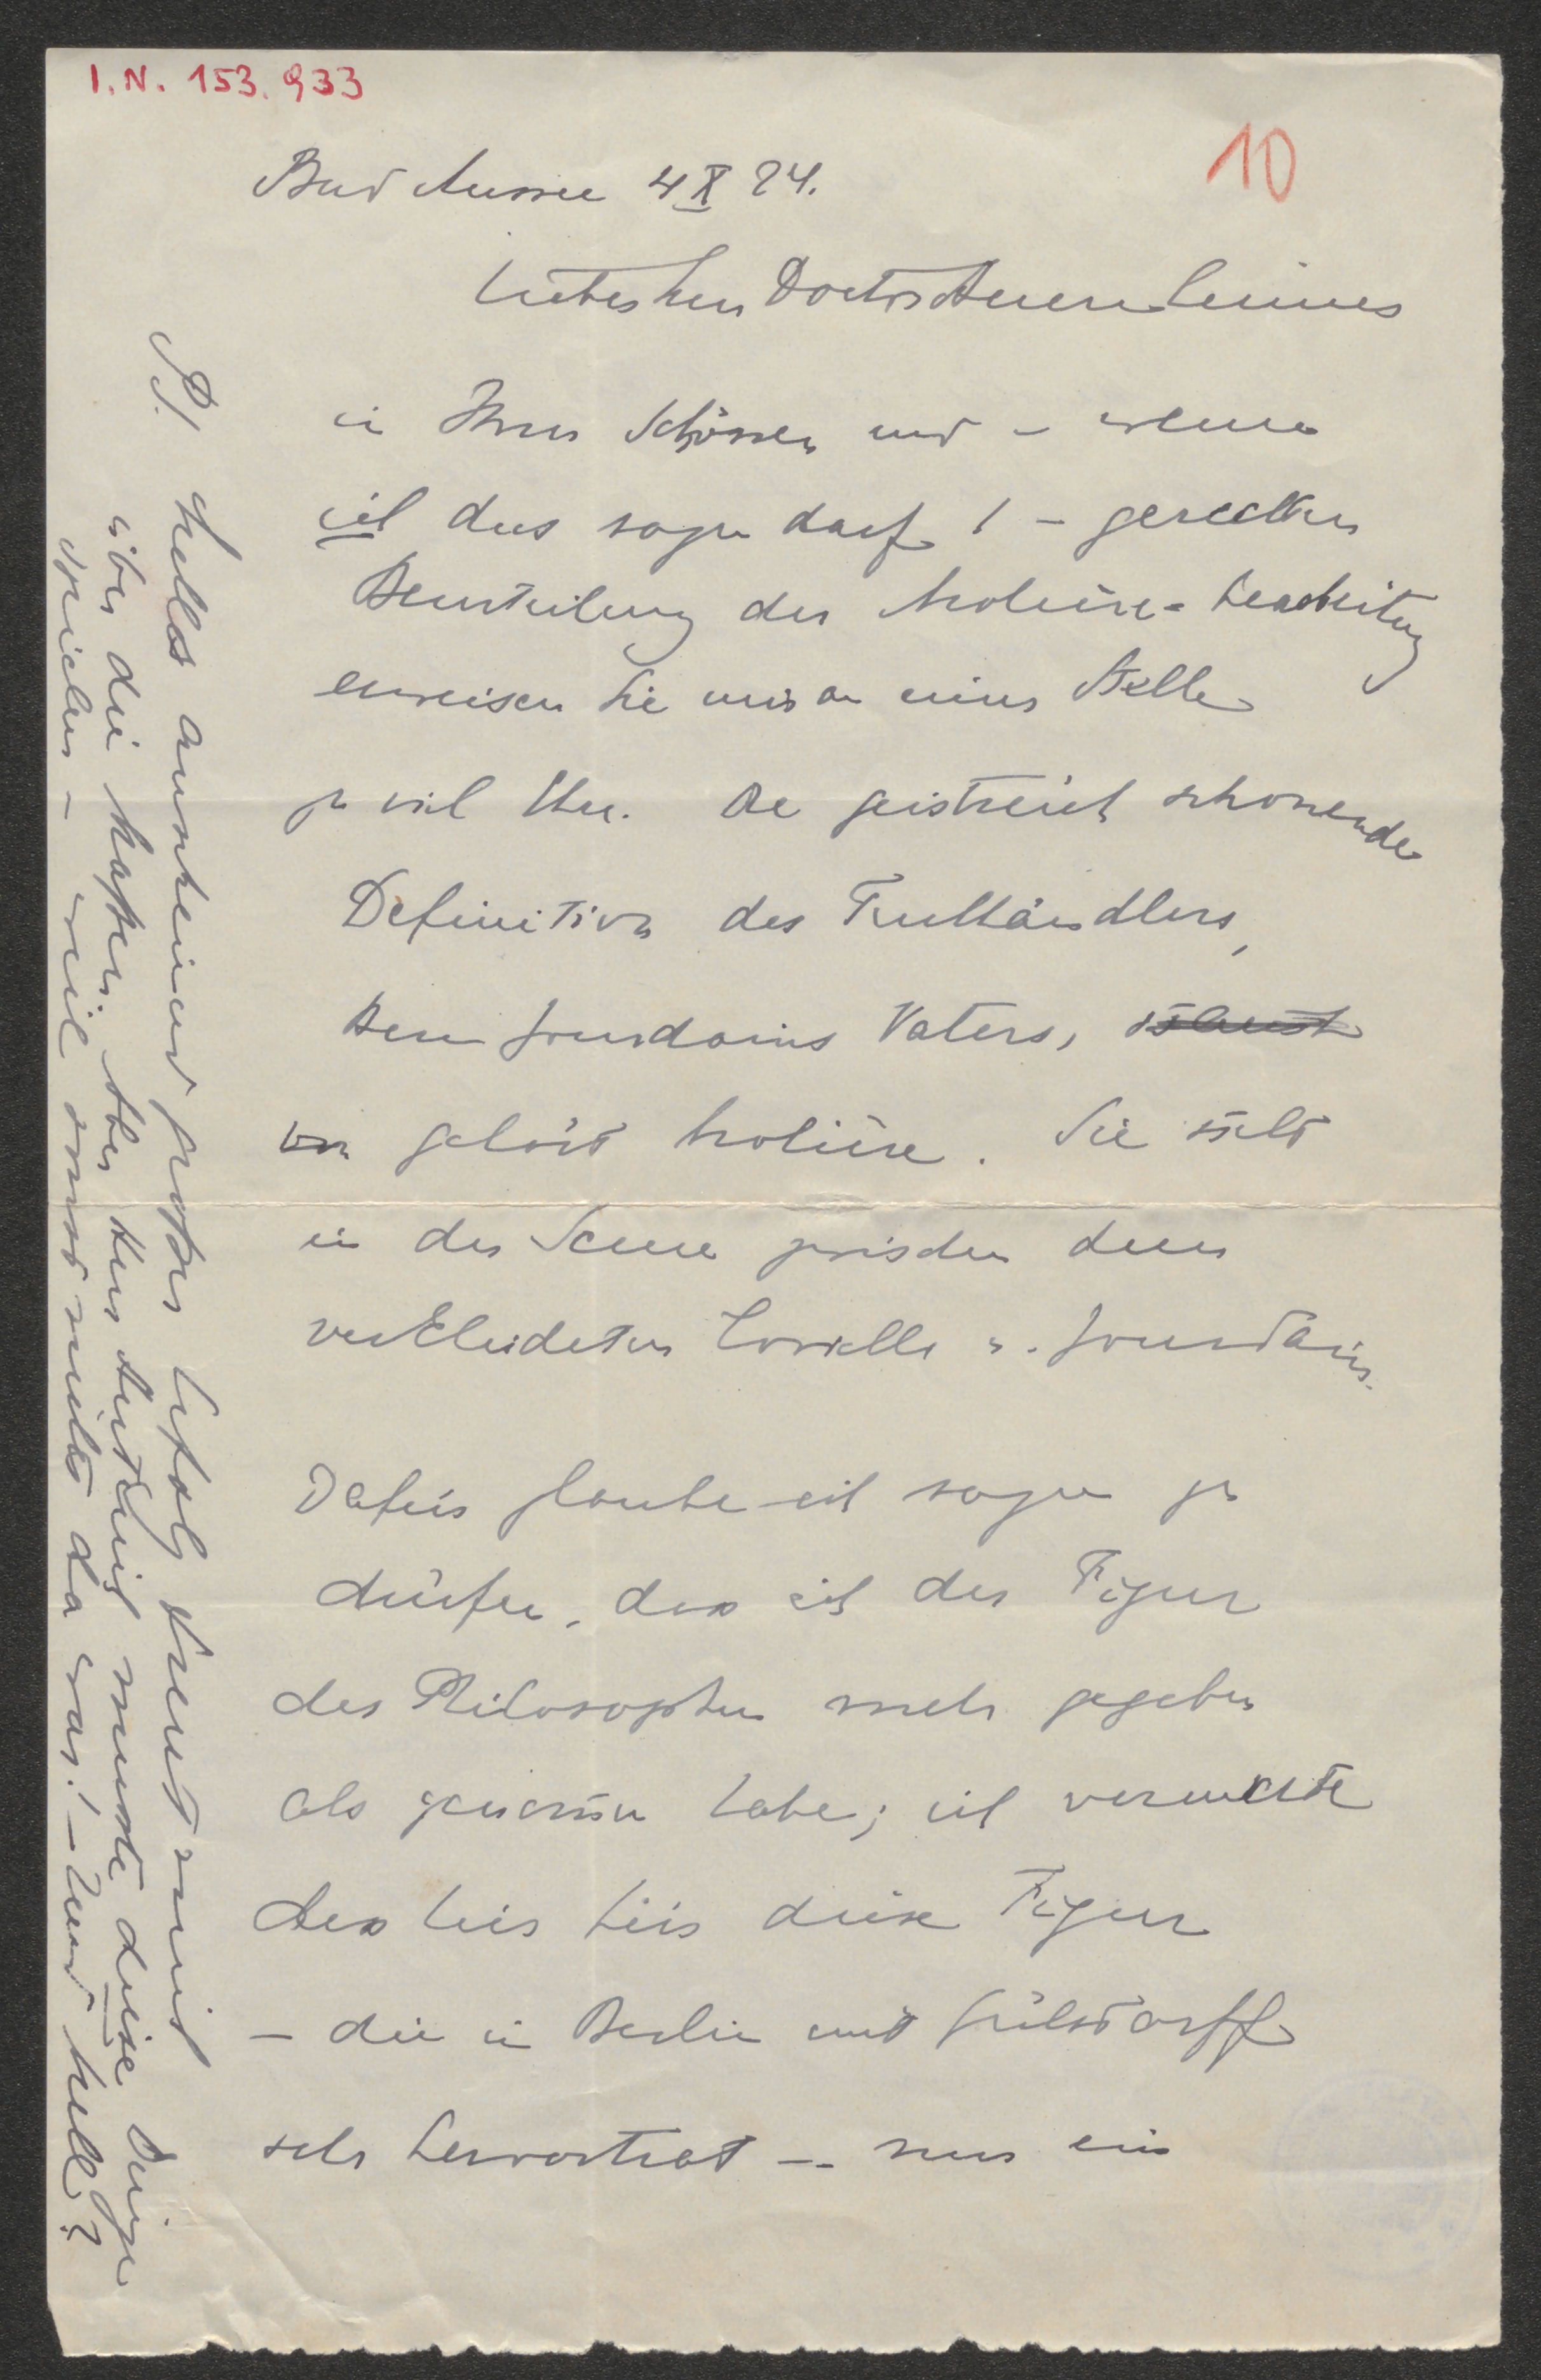 I.N. 153.933
10
Bad Aussee 4 X 24.
Lieber Herr Doctor Auernheimer
in Ihrer schönen und – wenn
ich das sagen darf! – gerechten
Beurteilung der Molière-bearbeitung
erweisen Sie mir an einer Stelle
zu viel Ehre. Die geistreich schonende
Definition des Tuchhändlers,
den Jourdains Vaters,
von gehört Molière. Sie steht
in der Scene zwischen dem
verkleideten Covielle u. Jourdain.
Dafür glaube ich sagen zu
dürfen, dass ich der Figur
des Philosophen mehr gegeben
als genommen habe; ich vermute
dass bei diese Figur
– die in Berlin mit Gülstorff
sehr hervortrat – nur ein
P.S. Hellas anscheinend großer Erfolg freut mich
über die Maßen. Aber Herr musste diese Dinge
spielen – weil sonst niemand da war! – Und Hell?